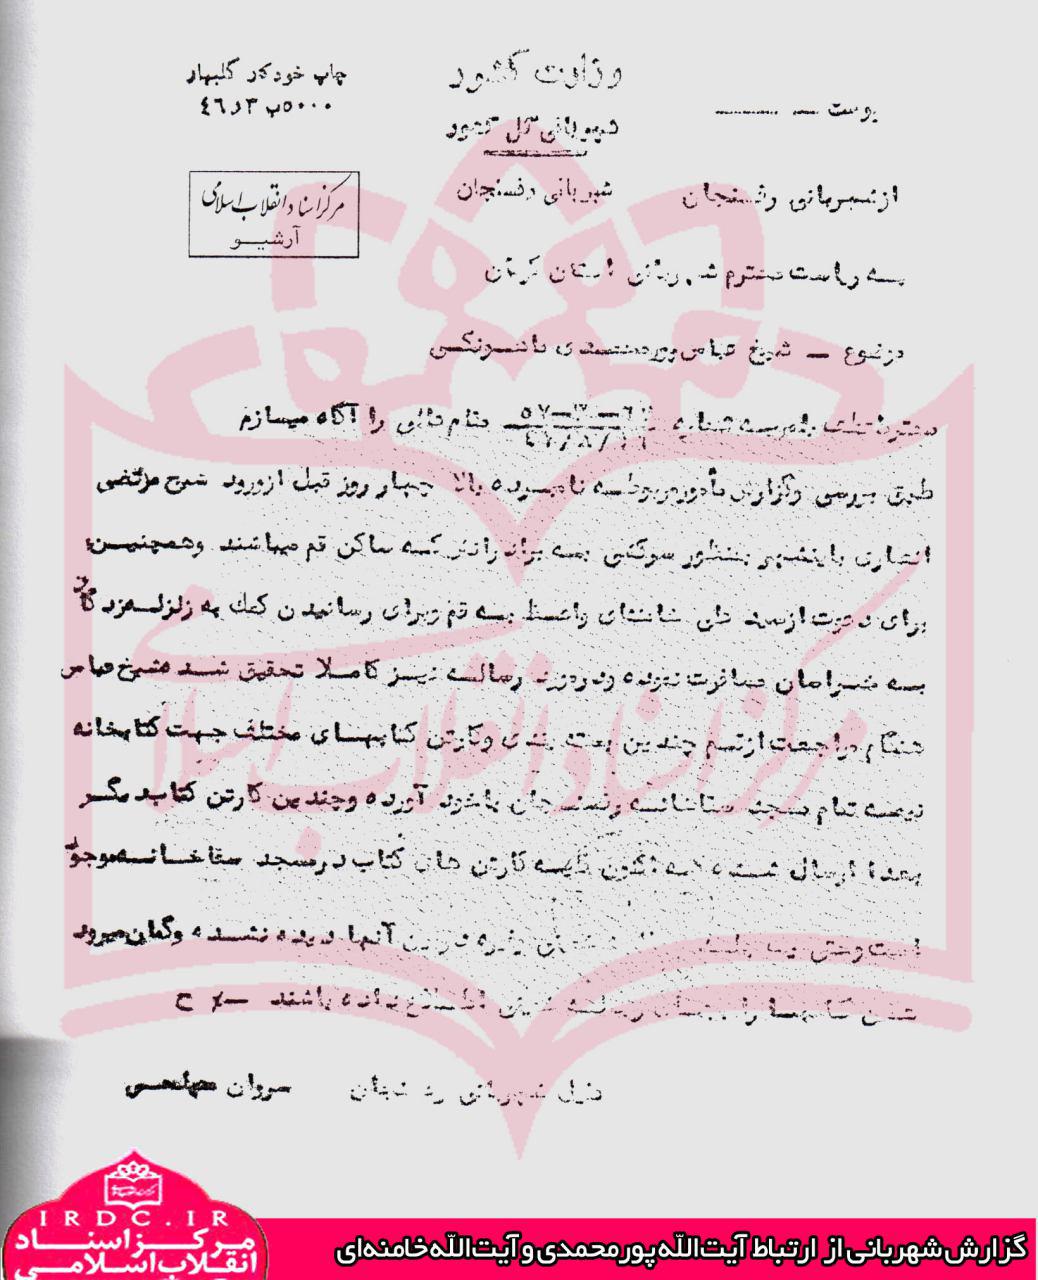 وزارت کشور
شهربانی کل کشور
چاپ خودکار گلبهار
۵۰۰۰۰ب ۳ر۴۶
پیوست
از شهربانی رفسنجان
شهربانی رفسنجان
مرکز اسناد انقلاب اسلامی
آرشیو
به ریاست محترم شهربانی استان کرمان
موضوع ـ شیخ عباس پورمحمدی ماسونکی
محترما عطف بامریه شماره مقام عالی را آگاه میسازم
طبق بررسی وگزارش مأمور مربوطه نامبرده بالا چهار روز قبل از ورود شیخ مرتضی
انصاری باینشهر بمنظور سرکشی به برادرانش که ساکن قم میباشند وهمچنین
برای دعوت از سید علی خامنه‌ای واعظ به قم وبرای رسانیدن کمك به زلزله‌زدگان
به خراسان مسافرت نموده ودر مورد رساله نیز کاملا تحقیق شد شیخ عباس
هنگام مراجعت از قم چندین بسته بندی وکارتن کتابهای مختلف جهت کتابخانه
نیمه تمام مسجد سقاخانه رفسنجان باخود آورده وچندین کارتن کتاب دیگر
بعدا ارسال شده که اکنون کلیه کارتن های کتاب در مسجد سقاخانه موجود
است آنها دیده نشده وگمان میرود
باشند ـ ح
شهربانی رفسنجان سروان
مرکز اسناد انقلاب اسلامی
IRDC.IR
مرکز اسناد
انقلاب اسلامی
گزارش شهربانی از ارتباط آیت‌الله پورمحمدی و آیت‌الله خامنه‌ای